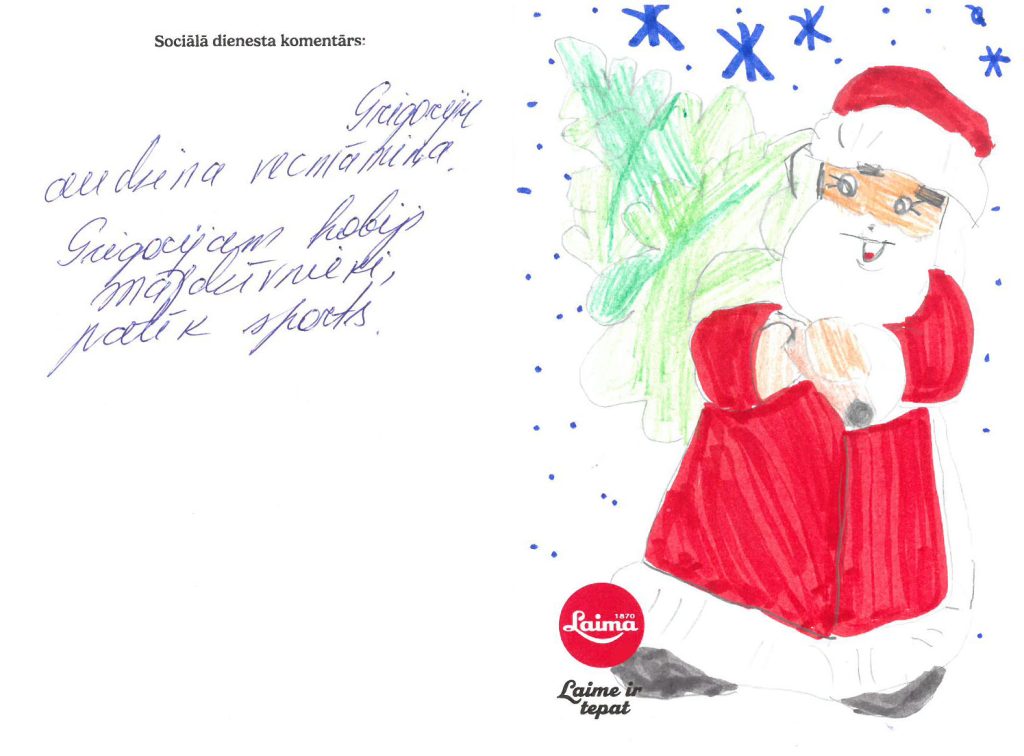 Sociālā dienesta komentārs:
Grigoriju
audzina vecmāmiņa.
Grigorijam hobijs
mājdzīvnieki,
patīk sports.
1870
Laima
Laime ir
tepat